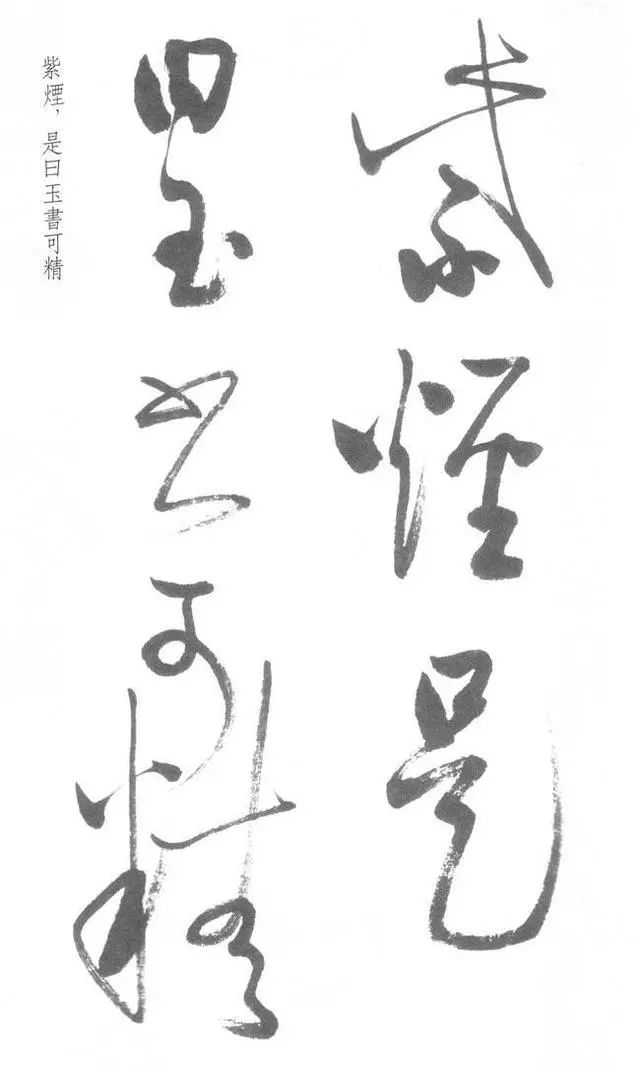 紫煙是
曰玉書可精
紫煙，是曰玉書可精